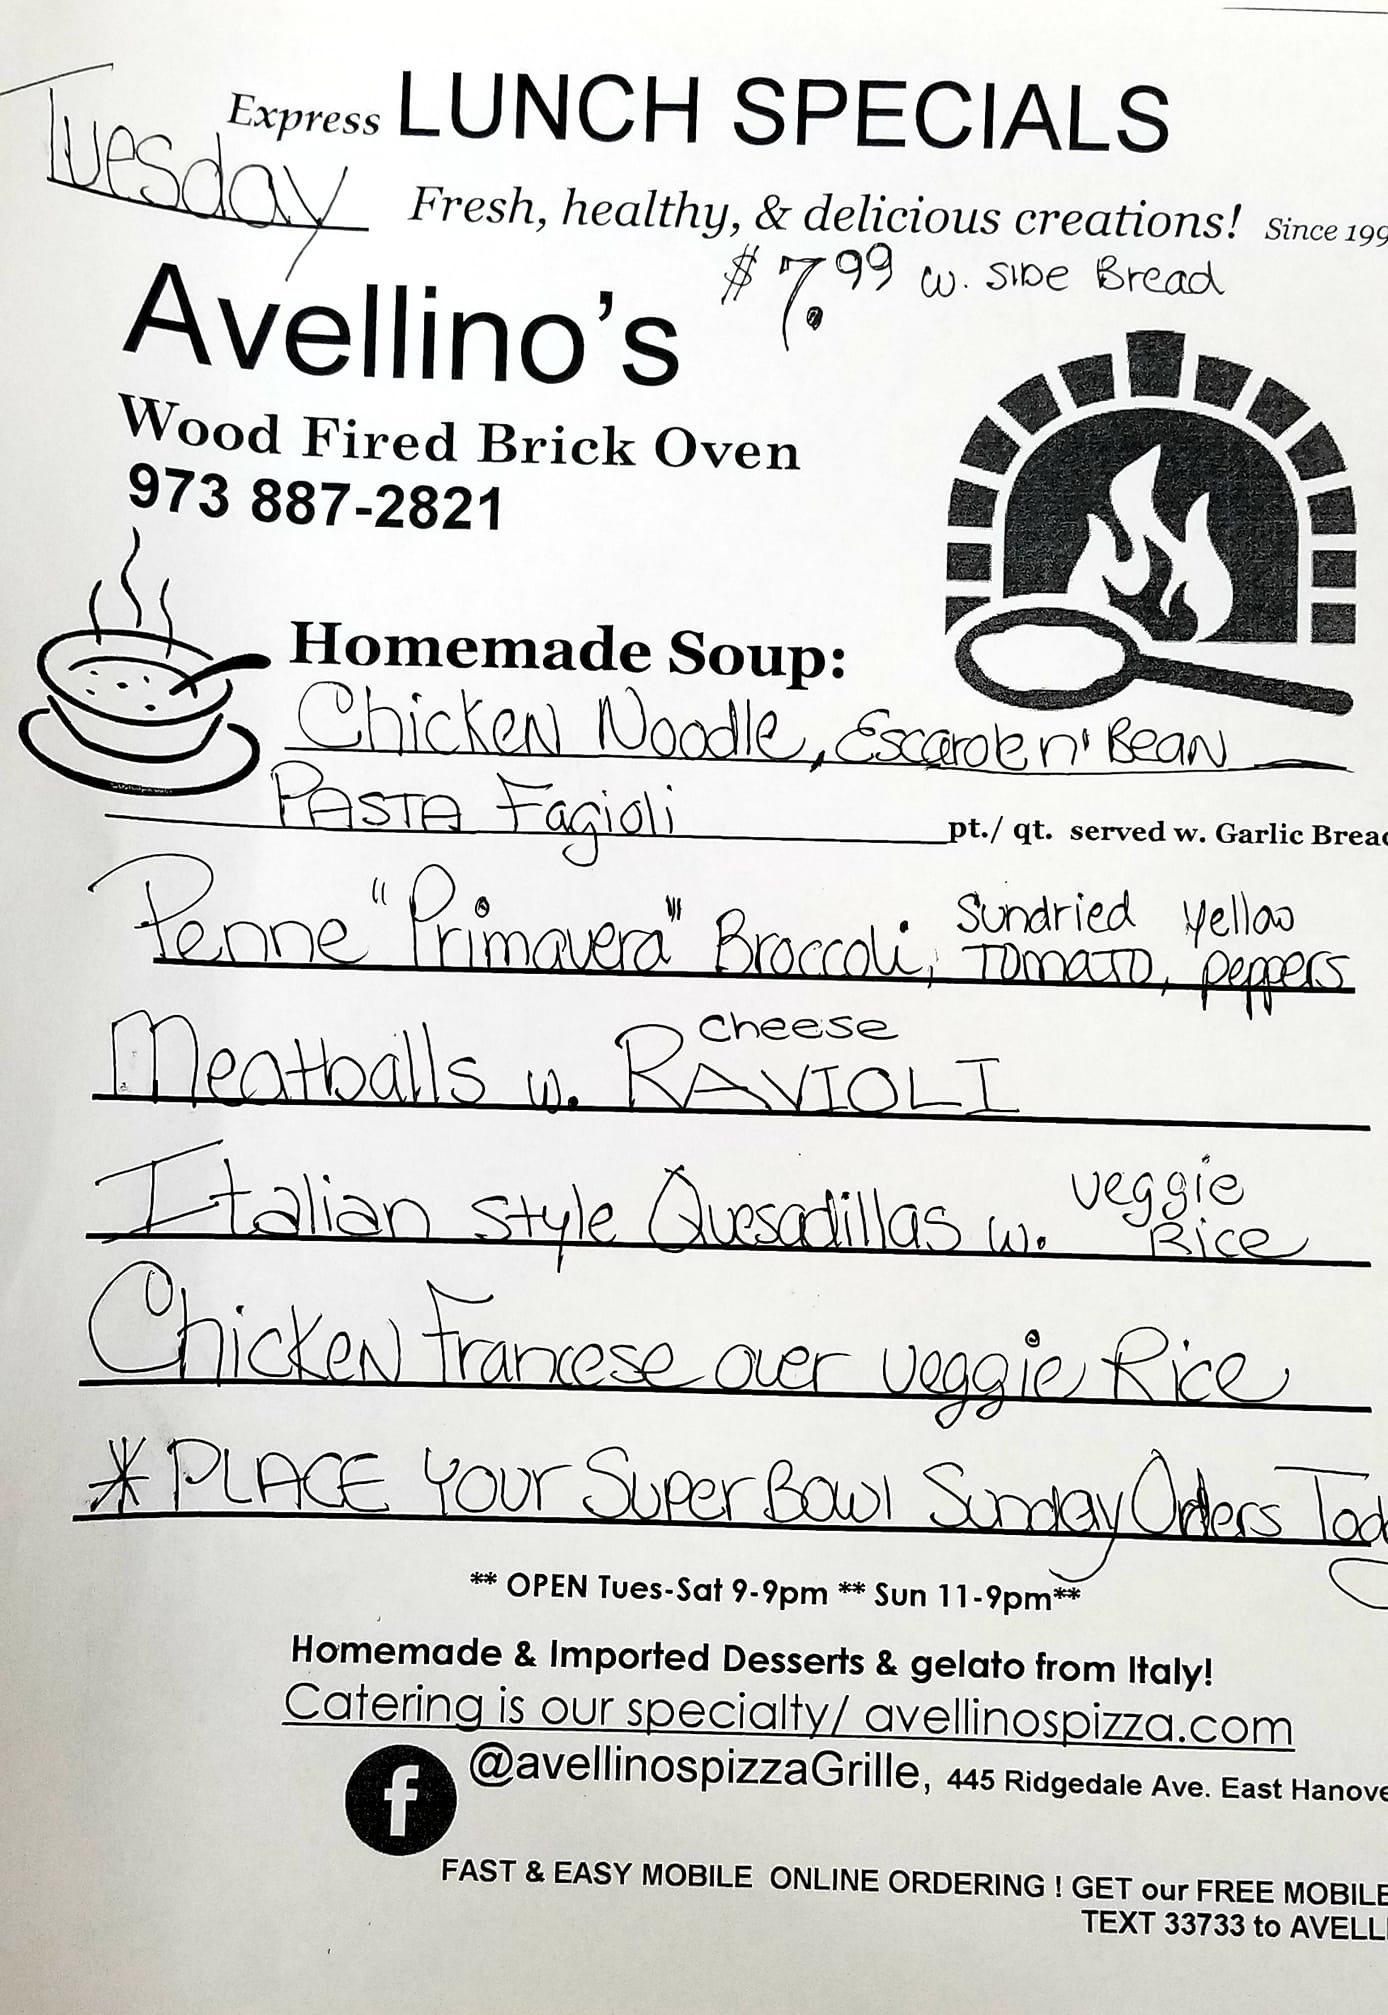 Tuesday
Express LUNCH SPECIALS
Fresh, healthy, & delicious creations! Since 199
$7.99 w. SIDE Bread
Avellino's
Wood Fired Brick Oven
973 887-2821
Homemade Soup:
Chicken Noodle, Escarole n' Bean
PASTA Fagioli pt./ qt. served w. Garlic Bread
Penne "Primavera" Broccoli, Sundried TOMATO, Yellow peppers
Meatballs w. Cheese RAVIOLI
Italian Style Quesadillas w. Veggie Rice
Chicken Francese over veggie Rice
* PLACE Your Super Bowl Sunday Orders Tod
** OPEN Tues-Sat 9-9pm ** Sun 11-9pm**
Homemade & Imported Desserts & gelato from Italy!
Catering is our specialty/ avellinospizza.com
f @avellinospizzaGrille, 445 Ridgedale Ave. East Hanove
FAST & EASY MOBILE ONLINE ORDERING ! GET our FREE MOBILE
TEXT 33733 to AVELL